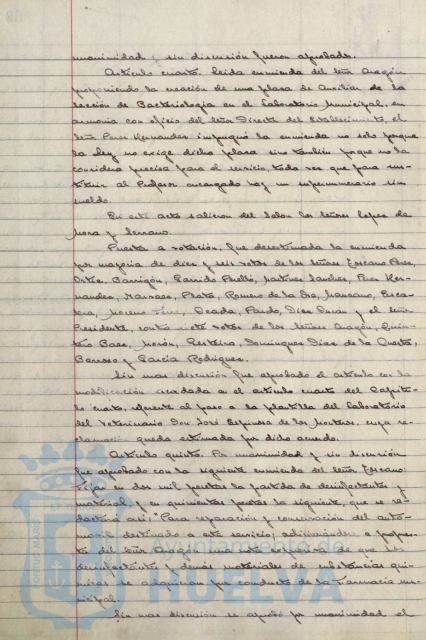 unanimidad y sin discusión fueron aprobados.
Artículo cuarto. Leida enmienda del señor Aragón
proponiendo la creación de una plaza de Auxiliar de la
Sección de Bacteriología en el Laboratorio Municipal, en
armonia con oficio del señor Director del Establecimiento, el
señor Perez Hernandez impugnó la enmienda no solo porque
la ley no exige dicha plaza sino tambien porque no la
considera precisa para el servicio, toda vez que para sus-
tituir al Profesor encargado hay un supernumerario sin
sueldo.
En este acto salieron del Salon los señores Lopez de
Mora y Serrano.
Puesta a votación, fue desestimada la enmienda
por mayoria de diez y seis votos de los señores Escano
Ortiz, Barrigón, Garrido Perelló, Martinez Sanchez, Perez Her-
nandez, Narvaez, Prats, Romero de la Osa,
Moreno Ocada, Pardo, Diaz y el señor
Presidente, contra siete votos de los señores Aragón, Quin-
Baez, Morón, Dominguez Diaz de la Cuesta,
Barroso y Garcia Rodriguez.
Sin mas discusión fue aprobado el artículo con la
modificación acordada en el artículo cuarto del Capitu-
lo cuarto, referente al paso a la plantilla del Laboratorio
del Veterinario Don José Espinosa de los Monteros, cuya re-
clamación queda estimada por dicho acuerdo.
Artículo quinto. Por unanimidad y sin discusión
fue aprobado con la siguiente enmienda del señor Escano:
Fijar en dos mil pesetas la partida de desinfectantes y
material y en quinientas pesetas la siguiente, que se re-
dactará asi: "Para reparación y conservación del auto-
movil destinado a este servicio; adicionandose a propues-
ta del señor Aragón una nota expresiva de que los
desinfectantes y demas materiales de substancias quí-
micas se adquieran por conducto de la Farmacia mu-
nicipal.
Sin mas discusión se aprobó por unanimidad el
HUELVA